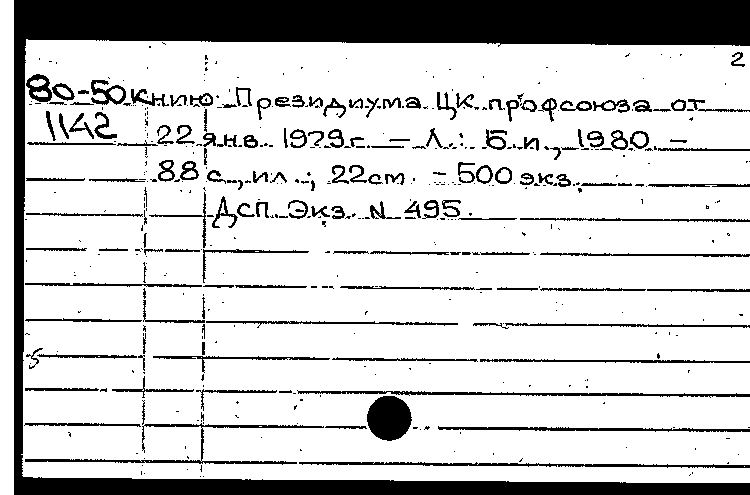 2
80-50книю Президиума ЦК профсоюза от
1142 22 янв. 1979г. — Л.: Б.и., 1980. —
88 с., ил.; 22см. — 500 экз.
ДСП. Экз. N 495.
5